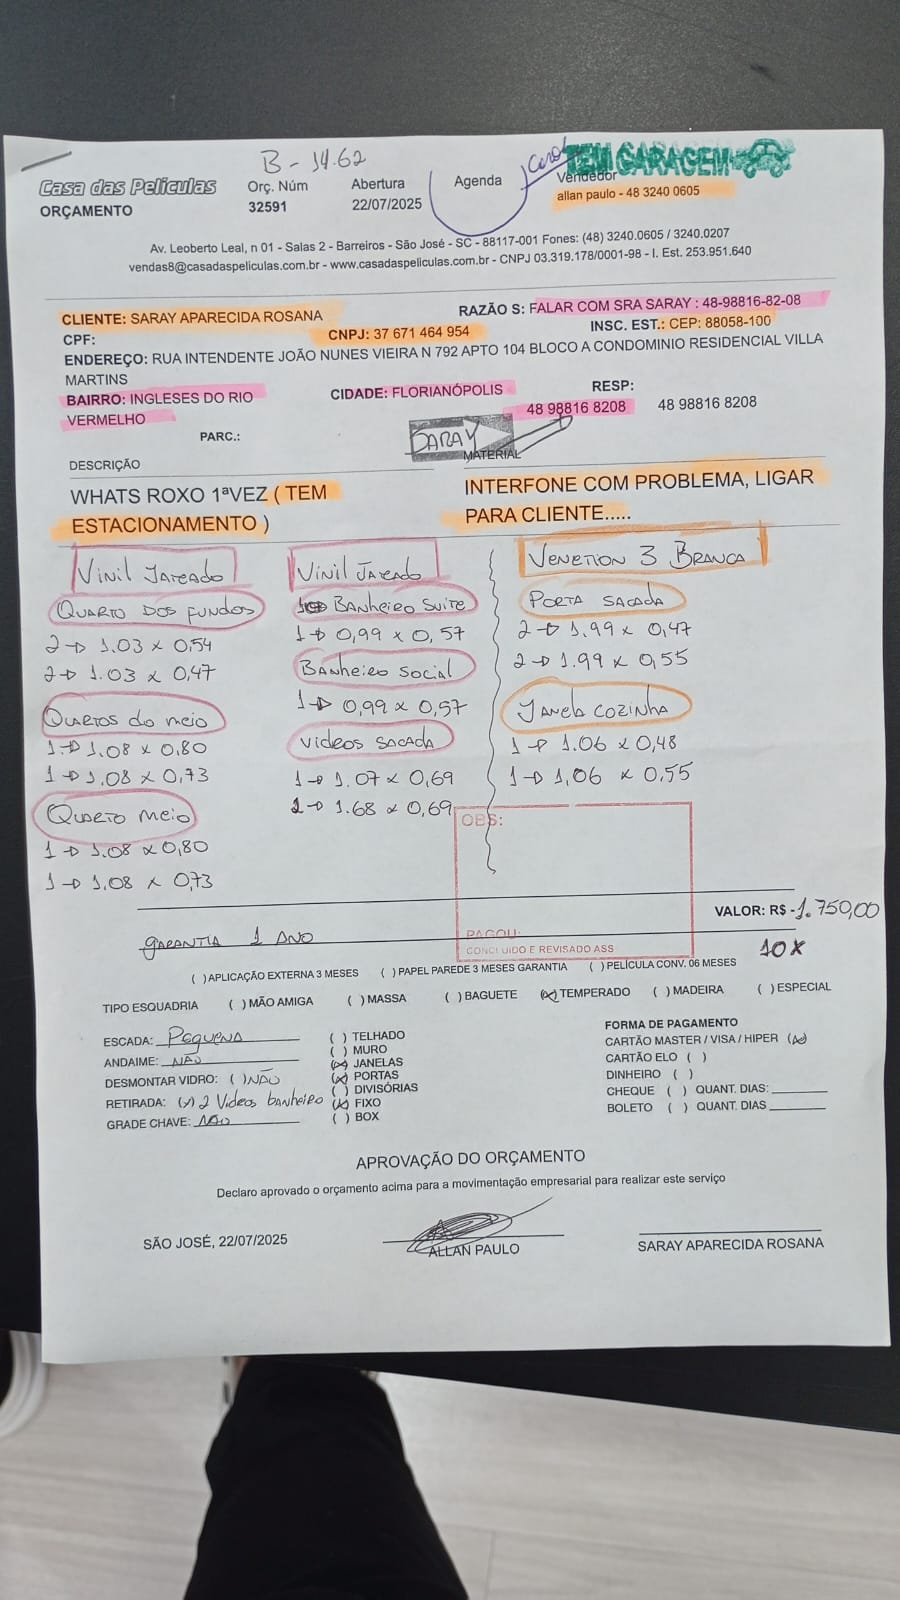 B - 14.62
TEM GARAGEM
Casa das Películas
ORÇAMENTO
Orç. Núm
32591
Abertura
22/07/2025
Agenda
Vendedor
allan paulo - 48 3240 0605
Av. Leoberto Leal, n 01 - Salas 2 - Barreiros - São José - SC - 88117-001 Fones: (48) 3240.0605 / 3240.0207
vendas8@casadaspeliculas.com.br - www.casadaspeliculas.com.br - CNPJ 03.319.178/0001-98 - I. Est. 253.951.640
CLIENTE: SARAY APARECIDA ROSANA
RAZÃO S: FALAR COM SRA SARAY : 48-98816-82-08
CPF:
CNPJ: 37 671 464 954
INSC. EST.: CEP: 88058-100
ENDEREÇO: RUA INTENDENTE JOÃO NUNES VIEIRA N 792 APTO 104 BLOCO A CONDOMINIO RESIDENCIAL VILLA
MARTINS
BAIRRO: INGLESES DO RIO
VERMELHO
CIDADE: FLORIANÓPOLIS
RESP:
48 98816 8208 48 98816 8208
PARC.:
SARAY
DESCRIÇÃO
MATERIAL
WHATS ROXO 1ªVEZ ( TEM
ESTACIONAMENTO )
INTERFONE COM PROBLEMA, LIGAR
PARA CLIENTE.....
Vinil Jateado
Quarto dos fundos
2→ 1.03 x 0,54
2→ 1.03 x 0,47
Quartos do meio
1→ 1.08 x 0,80
1→ 1.08 x 0,73
Quarto meio
1→ 1.08 x 0,80
1→ 1.08 x 0,73
Vinil Jateado
Banheiro Suite
1→ 0,99 x 0,57
Banheiro Social
1→ 0,99 x 0,57
Vidros Sacada
1→ 1.07 x 0,69
2→ 1.68 x 0,69
Venetion 3 Branca
Porta sacada
2→ 1.99 x 0,47
2→ 1.99 x 0,55
Janela Cozinha
1→ 1.06 x 0,48
1→ 1,06 x 0,55
OBS:
VALOR: R$ -1.750,00
garantia 1 ano
PAGOU:
CONCLUIDO E REVISADO ASS
10x
( )APLICAÇÃO EXTERNA 3 MESES ( ) PAPEL PAREDE 3 MESES GARANTIA ( ) PELÍCULA CONV. 06 MESES
TIPO ESQUADRIA ( ) MÃO AMIGA ( ) MASSA ( ) BAGUETE (x) TEMPERADO ( ) MADEIRA ( ) ESPECIAL
ESCADA: Pequena
ANDAIME: NÃO
DESMONTAR VIDRO: ( )NÃO
RETIRADA: (x) 2 Vidros banheiro
GRADE CHAVE: NÃO
( ) TELHADO
( ) MURO
(x) JANELAS
(x) PORTAS
( ) DIVISÓRIAS
(x) FIXO
( ) BOX
FORMA DE PAGAMENTO
CARTÃO MASTER / VISA / HIPER (x)
CARTÃO ELO ( )
DINHEIRO ( )
CHEQUE ( ) QUANT. DIAS:
BOLETO ( ) QUANT. DIAS
APROVAÇÃO DO ORÇAMENTO
Declaro aprovado o orçamento acima para a movimentação empresarial para realizar este serviço
SÃO JOSÉ, 22/07/2025
ALLAN PAULO
SARAY APARECIDA ROSANA